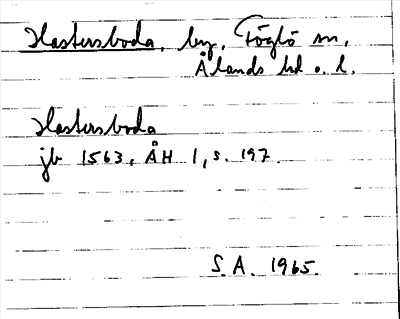 Hastersboda, by, Föglö sn,
Ålands hd o. l.
Hastersboda
jb 1563, ÅH 1, s. 197.
S.A. 1965.